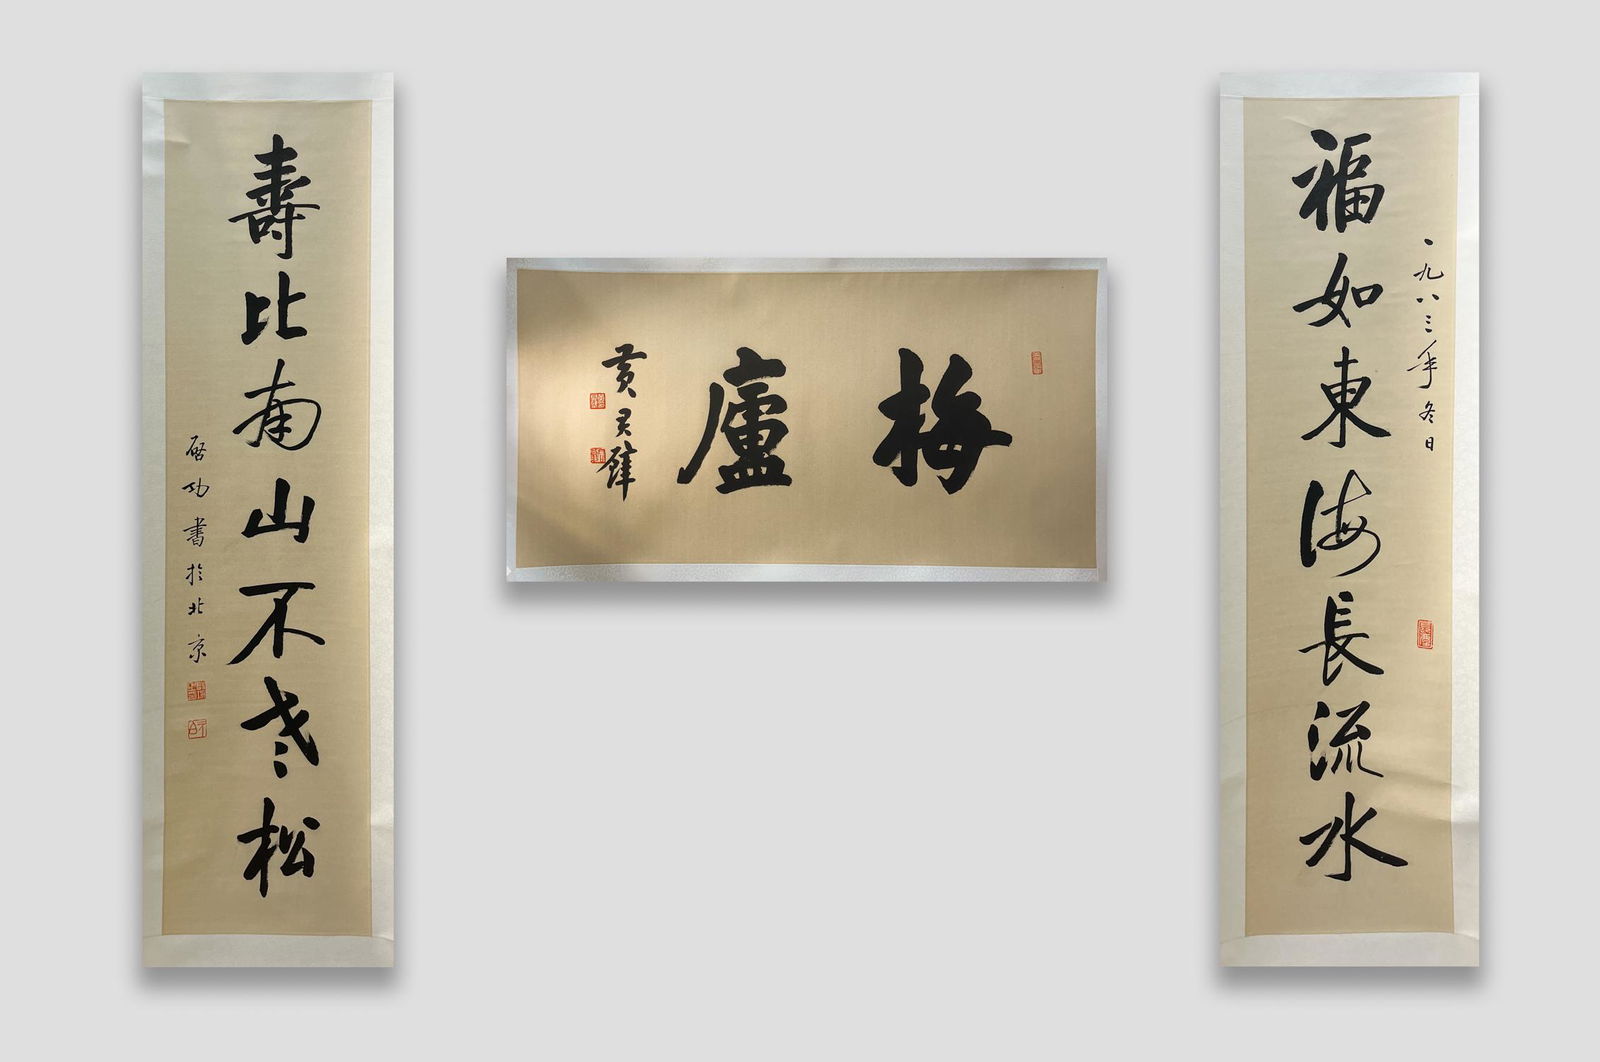 一九八三年冬日
福如東海長流水
梅廬
黃君璧
壽比南山不老松
啓功書於北京